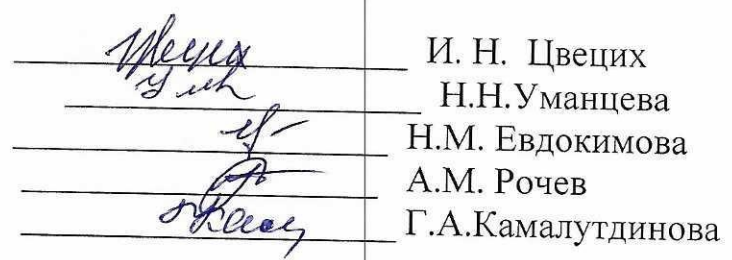 И. Н. Цвецих
Н.Н.Уманцева
Н.М. Евдокимова
А.М. Рочев
Г.А.Камалутдинова